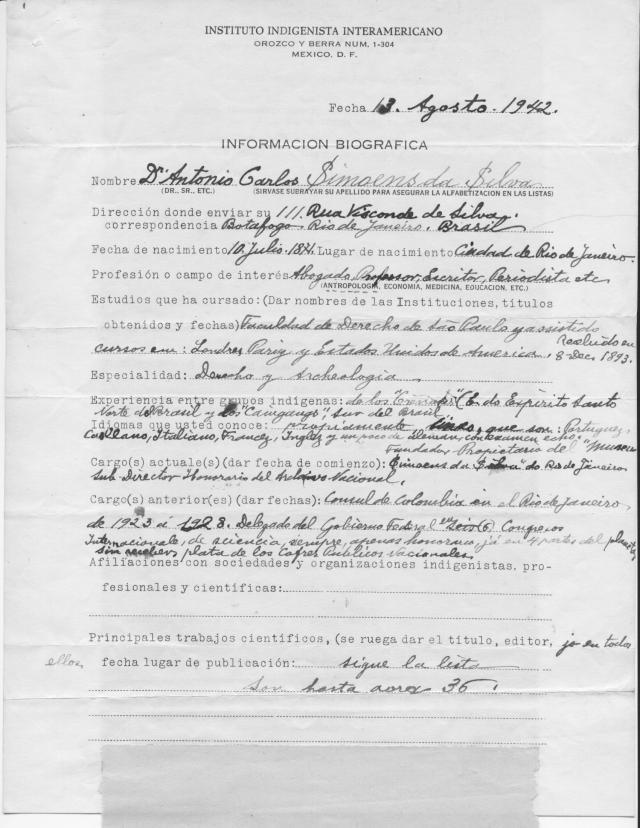 INSTITUTO INDIGENISTA INTERAMERICANO
OROZCO Y BERRA NUM. 1-304
MEXICO, D. F.
Fecha 13. Agosto. 1942.
INFORMACION BIOGRAFICA
Nombre Dr Antonio Carlos Simoens da Silva
(DR., SR., ETC.) (SIRVASE SUBRAYAR SU APELLIDO PARA ASEGURAR LA ALFABETIZACION EN LAS LISTAS)
Dirección donde enviar su 111. Rua Visconde de Silva,
correspondencia Botafogo. Rio de Janeiro. Brasil
Fecha de nacimiento 10. Julio. 1871. Lugar de nacimiento Ciudad de Rio de Janeiro.
Profesión o campo de interés Abogado, Profesor, Escritor, Periodista etc
(ANTROPOLOGIA, ECONOMIA, MEDICINA, EDUCACION, ETC.)
Estudios que ha cursado: (Dar nombres de las Instituciones, títulos
obtenidos y fechas) Faculdad de Derecho de São Paulo y asistido
cursos em: Londres Pariz y Estados Unidos de America. 8-Dec. 1893.
Especialidad: Derecho y Archeologia.
Experiencia entre grupos indígenas: de los (E. do Espirito Santo
Norte do Brasil y los "Caingangs", sur del Brasil.
Idiomas que usted conoce: propiamente, que son: Portuguez,
Castellano, Italiano, Francez, Inglez y un poco de Aleman,
Fundador Propietario del "Museu
Cargo(s) actuale(s) (dar fecha de comienzo): Simoens da Silva" do Rio de Janeiro
Sub Director Honorario del Archivo Nacional.
Cargo(s) anterior(es) (dar fechas): Consul de Colombia en el Rio de Janeiro
de 1923 á 1928. Delegado del Gobierno Federal en Seis (6) Congresos
Internacionales, de sciencia, sempre, apenas honorario, já en 4 partes del planeta,
sin recibir plata de los Cofres Publicos Nacionales.
Afiliaciones con sociedades y organizaciones indigenistas, pro-
fesionales y científicas:
Principales trabajos científicos, (se ruega dar el título, editor, ja en todos
ellos, fecha lugar de publicación: sigue la lista
son hasta aora 36.